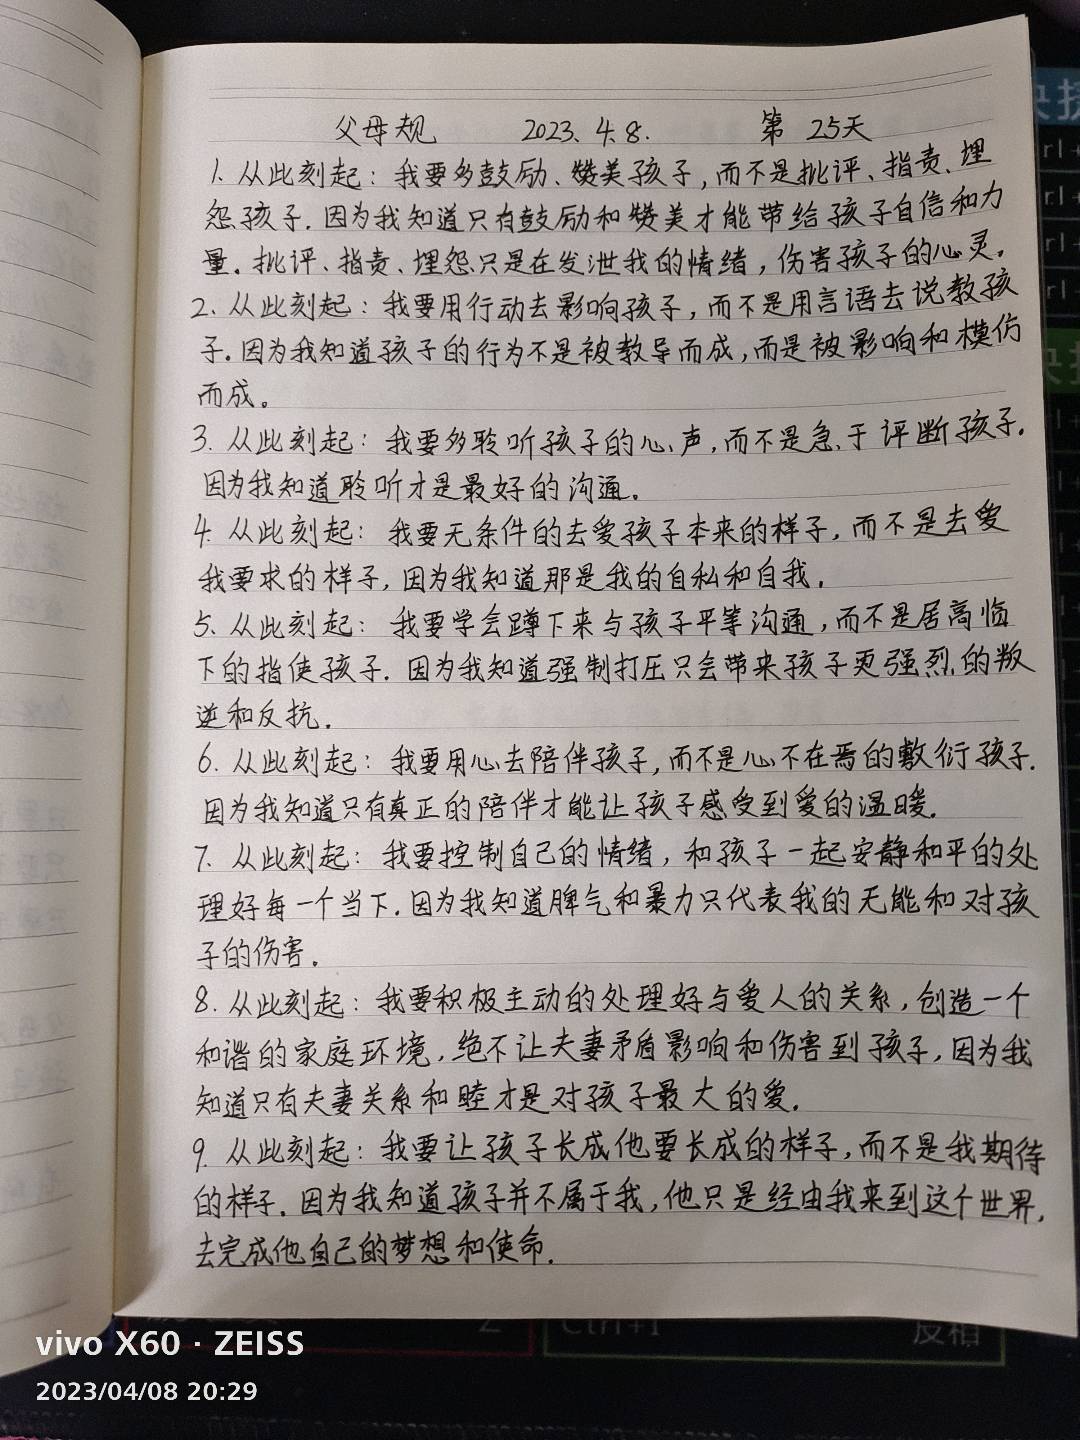 父母规 2023.4.8. 第25天
1. 从此刻起：我要多鼓励、赞美孩子，而不是批评、指责、埋
怨孩子.因为我知道只有鼓励和赞美才能带给孩子自信和力
量.批评、指责、埋怨只是在发泄我的情绪，伤害孩子的心灵。
2. 从此刻起：我要用行动去影响孩子，而不是用言语去说教孩
子.因为我知道孩子的行为不是被教导而成，而是被影响和模仿
而成。
3. 从此刻起：我要多聆听孩子的心声，而不是急于评断孩子.
因为我知道聆听才是最好的沟通。
4. 从此刻起：我要无条件的去爱孩子本来的样子，而不是去爱
我要求的样子，因为我知道那是我的自私和自我.
5. 从此刻起：我要学会蹲下来与孩子平等沟通，而不是居高临
下的指使孩子.因为我知道强制打压只会带来孩子更强烈的叛
逆和反抗.
6. 从此刻起：我要用心去陪伴孩子，而不是心不在焉的敷衍孩子.
因为我知道只有真正的陪伴才能让孩子感受到爱的温暖.
7. 从此刻起：我要控制自己的情绪，和孩子一起安静和平的处
理好每一个当下.因为我知道脾气和暴力只代表我的无能和对孩
子的伤害.
8. 从此刻起：我要积极主动的处理好与爱人的关系，创造一个
和谐的家庭环境，绝不让夫妻矛盾影响和伤害到孩子，因为我
知道只有夫妻关系和睦才是对孩子最大的爱.
9. 从此刻起：我要让孩子长成他要长成的样子，而不是我期待
的样子.因为我知道孩子并不属于我，他只是经由我来到这个世界，
去完成他自己的梦想和使命.
Ctrl+I
反相
vivo X60 · ZEISS
2023/04/08 20:29